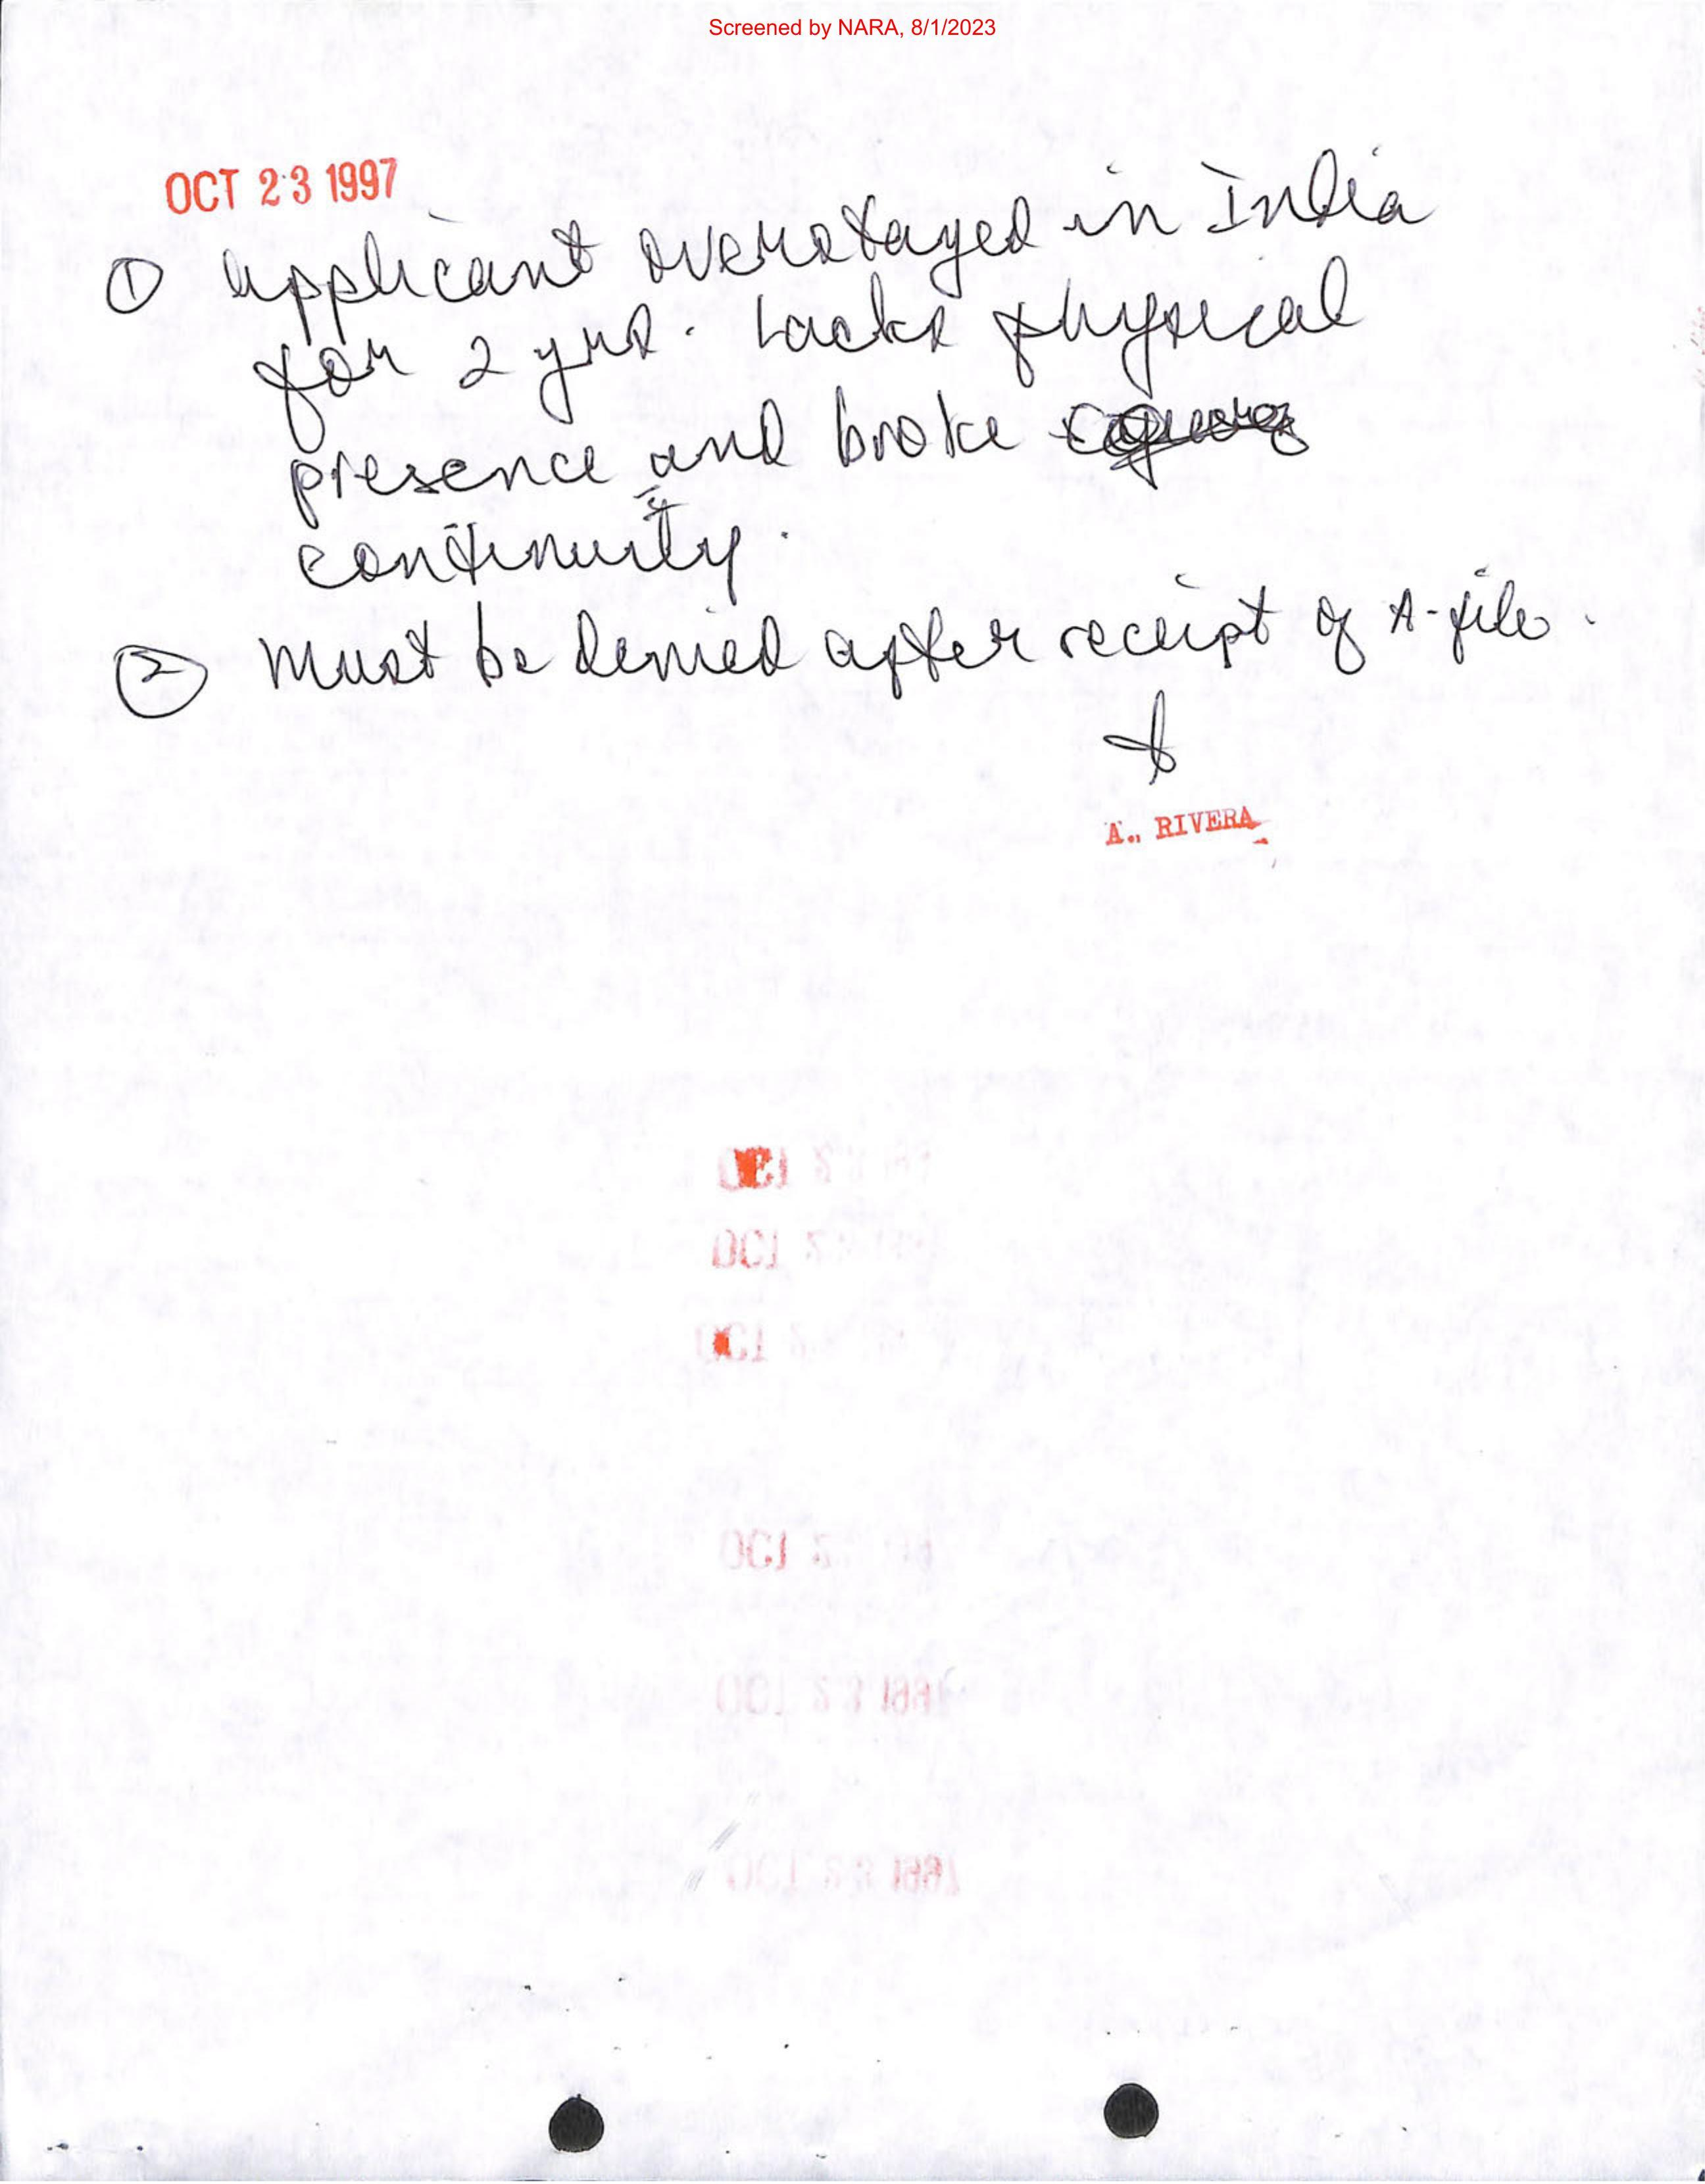 Screened by NARA, 8/1/2023
OCT 23 1997
① Applicant overstayed in India
for 2 yrs. Lacks physical
presence and broke
continuity.
② Must be denied after receipt of A-file.
A. RIVERA